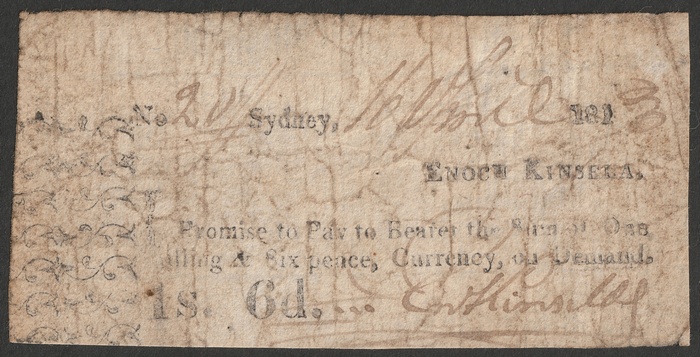 No 204 Sydney, 16 April 181
ENOCH KINSELA.
Promise to Pay to Bearer the Sum of One
illing & Six pence, Currency, on Demand.
1s. 6d. En Kinsela